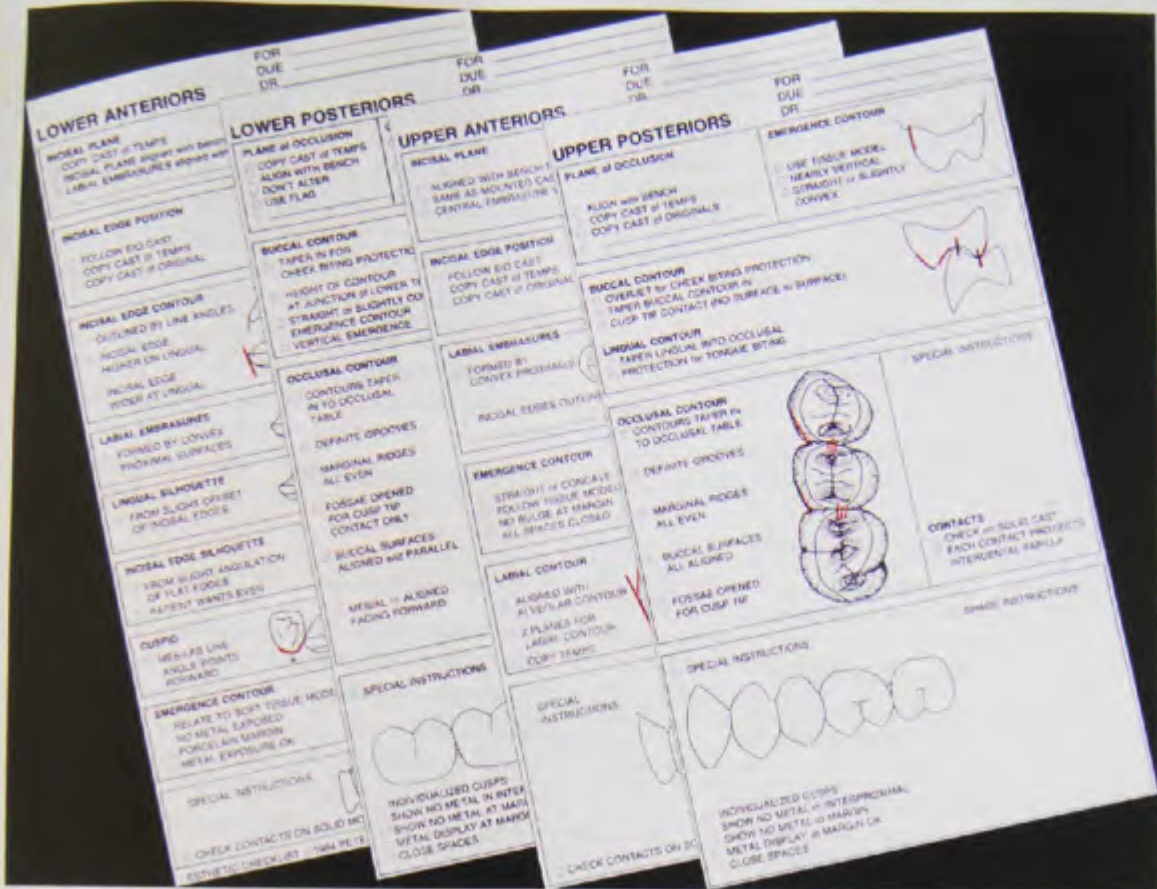 FOR
DUE
DR.
LOWER ANTERIORS
INCISAL PLANE
COPY CAST of TEMPS
INCISAL PLANE aligned with bench
LABIAL EMBRASURES aligned with
INCISAL EDGE POSITION
FOLLOW BIO CAST
COPY CAST of TEMPS
COPY CAST of ORIGINAL
INCISAL EDGE CONTOUR
OUTLINED BY LINE ANGLES
INCISAL EDGE
HIGHER ON LINGUAL
INCISAL EDGE
WIDER AT LINGUAL
LABIAL EMBRASURES
FORMED BY CONVEX
PROXIMAL SURFACES
LINGUAL SILHOUETTE
FROM SLIGHT OFFSET
OF INCISAL EDGES
INCISAL EDGE SILHOUETTE
FROM SLIGHT ANGULATION
OF FLAT EDGES
PATIENT WANTS EVEN
CUSPID
LINE
ANGLE POINTS
FORWARD
EMERGENCE CONTOUR
RELATE TO SOFT TISSUE MODE
NO METAL EXPOSED
PORCELAIN MARGIN
METAL EXPOSURE OK
SPECIAL INSTRUCTIONS
CHECK CONTACTS ON SOLID MO
ESTHETIC CHECKLIST ©1984 PETE
FOR
DUE
DR
LOWER POSTERIORS
PLANE of OCCLUSION
COPY CAST of TEMPS
ALIGN WITH BENCH
DON'T ALTER
USE FLAG
BUCCAL CONTOUR
TAPER IN FOR
CHEEK BITING PROTECTIO
HEIGHT OF CONTOUR
AT JUNCTION of LOWER
STRAIGHT or SLIGHTLY
EMERGENCE CONTOUR
VERTICAL EMERGENCE
OCCLUSAL CONTOUR
CONTOURS TAPER
IN TO OCCLUSAL
TABLE
DEFINITE GROOVES
MARGINAL RIDGES
ALL EVEN
FOSSAE OPENED
FOR CUSP TIP
CONTACT ONLY
BUCCAL SURFACES
ALIGNED and PARALLEL
MESIAL ALIGNED
FACING FORWARD
SPECIAL INSTRUCTIONS
INDIVIDUALIZED CUSPS
SHOW NO METAL IN INTER
SHOW NO METAL AT MAR
METAL DISPLAY AT MARG
CLOSE SPACES
FOR
DUE
DR
UPPER ANTERIORS
INCISAL PLANE
ALIGNED WITH BENCH
SAME AS MOUNTED CAS
CENTRAL EMBRASURE
INCISAL EDGE POSITION
FOLLOW BIO CAST
COPY CAST of TEMPS
COPY CAST of ORIGINAL
LABIAL EMBRASURES
FORMED BY
CONVEX PROXIMALS
INCISAL EDGES OUTLIN
EMERGENCE CONTOUR
STRAIGHT or CONCAVE
FOLLOW TISSUE MODEL
NO BULGE AT MARGIN
ALL SPACES CLOSED
LABIAL CONTOUR
ALIGNED WITH
ALVEOLAR CONTOUR
2 PLANES FOR
LABIAL CONTOUR
COPY TEMPS
SPECIAL
INSTRUCTIONS
CHECK CONTACTS ON SO
FOR
DUE
DR
UPPER POSTERIORS
PLANE of OCCLUSION
ALIGN with BENCH
COPY CAST of TEMPS
COPY CAST of ORIGINALS
EMERGENCE CONTOUR
USE TISSUE MODEL
NEARLY VERTICAL
STRAIGHT or SLIGHTLY
CONVEX
BUCCAL CONTOUR
OVERJET for CHEEK BITING PROTECTION
TAPER BUCCAL CONTOUR IN
CUSP TIP CONTACT (NO SURFACE to SURFACE)
LINGUAL CONTOUR
TAPER LINGUAL INTO OCCLUSAL
PROTECTION for TONGUE BITING
OCCLUSAL CONTOUR
CONTOURS TAPER IN
TO OCCLUSAL TABLE
DEFINITE GROOVES
MARGINAL RIDGES
ALL EVEN
BUCCAL SURFACES
ALL ALIGNED
FOSSAE OPENED
FOR CUSP TIP
SPECIAL INSTRUCTIONS
CONTACTS
CHECK on SOLID CAST
EACH CONTACT PROTECTS
INTERDENTAL PAPILLA
SHADE INSTRUCTIONS
SPECIAL INSTRUCTIONS
INDIVIDUALIZED CUSPS
SHOW NO METAL in INTERPROXIMAL
SHOW NO METAL at MARGIN
METAL DISPLAY at MARGIN OK
CLOSE SPACES